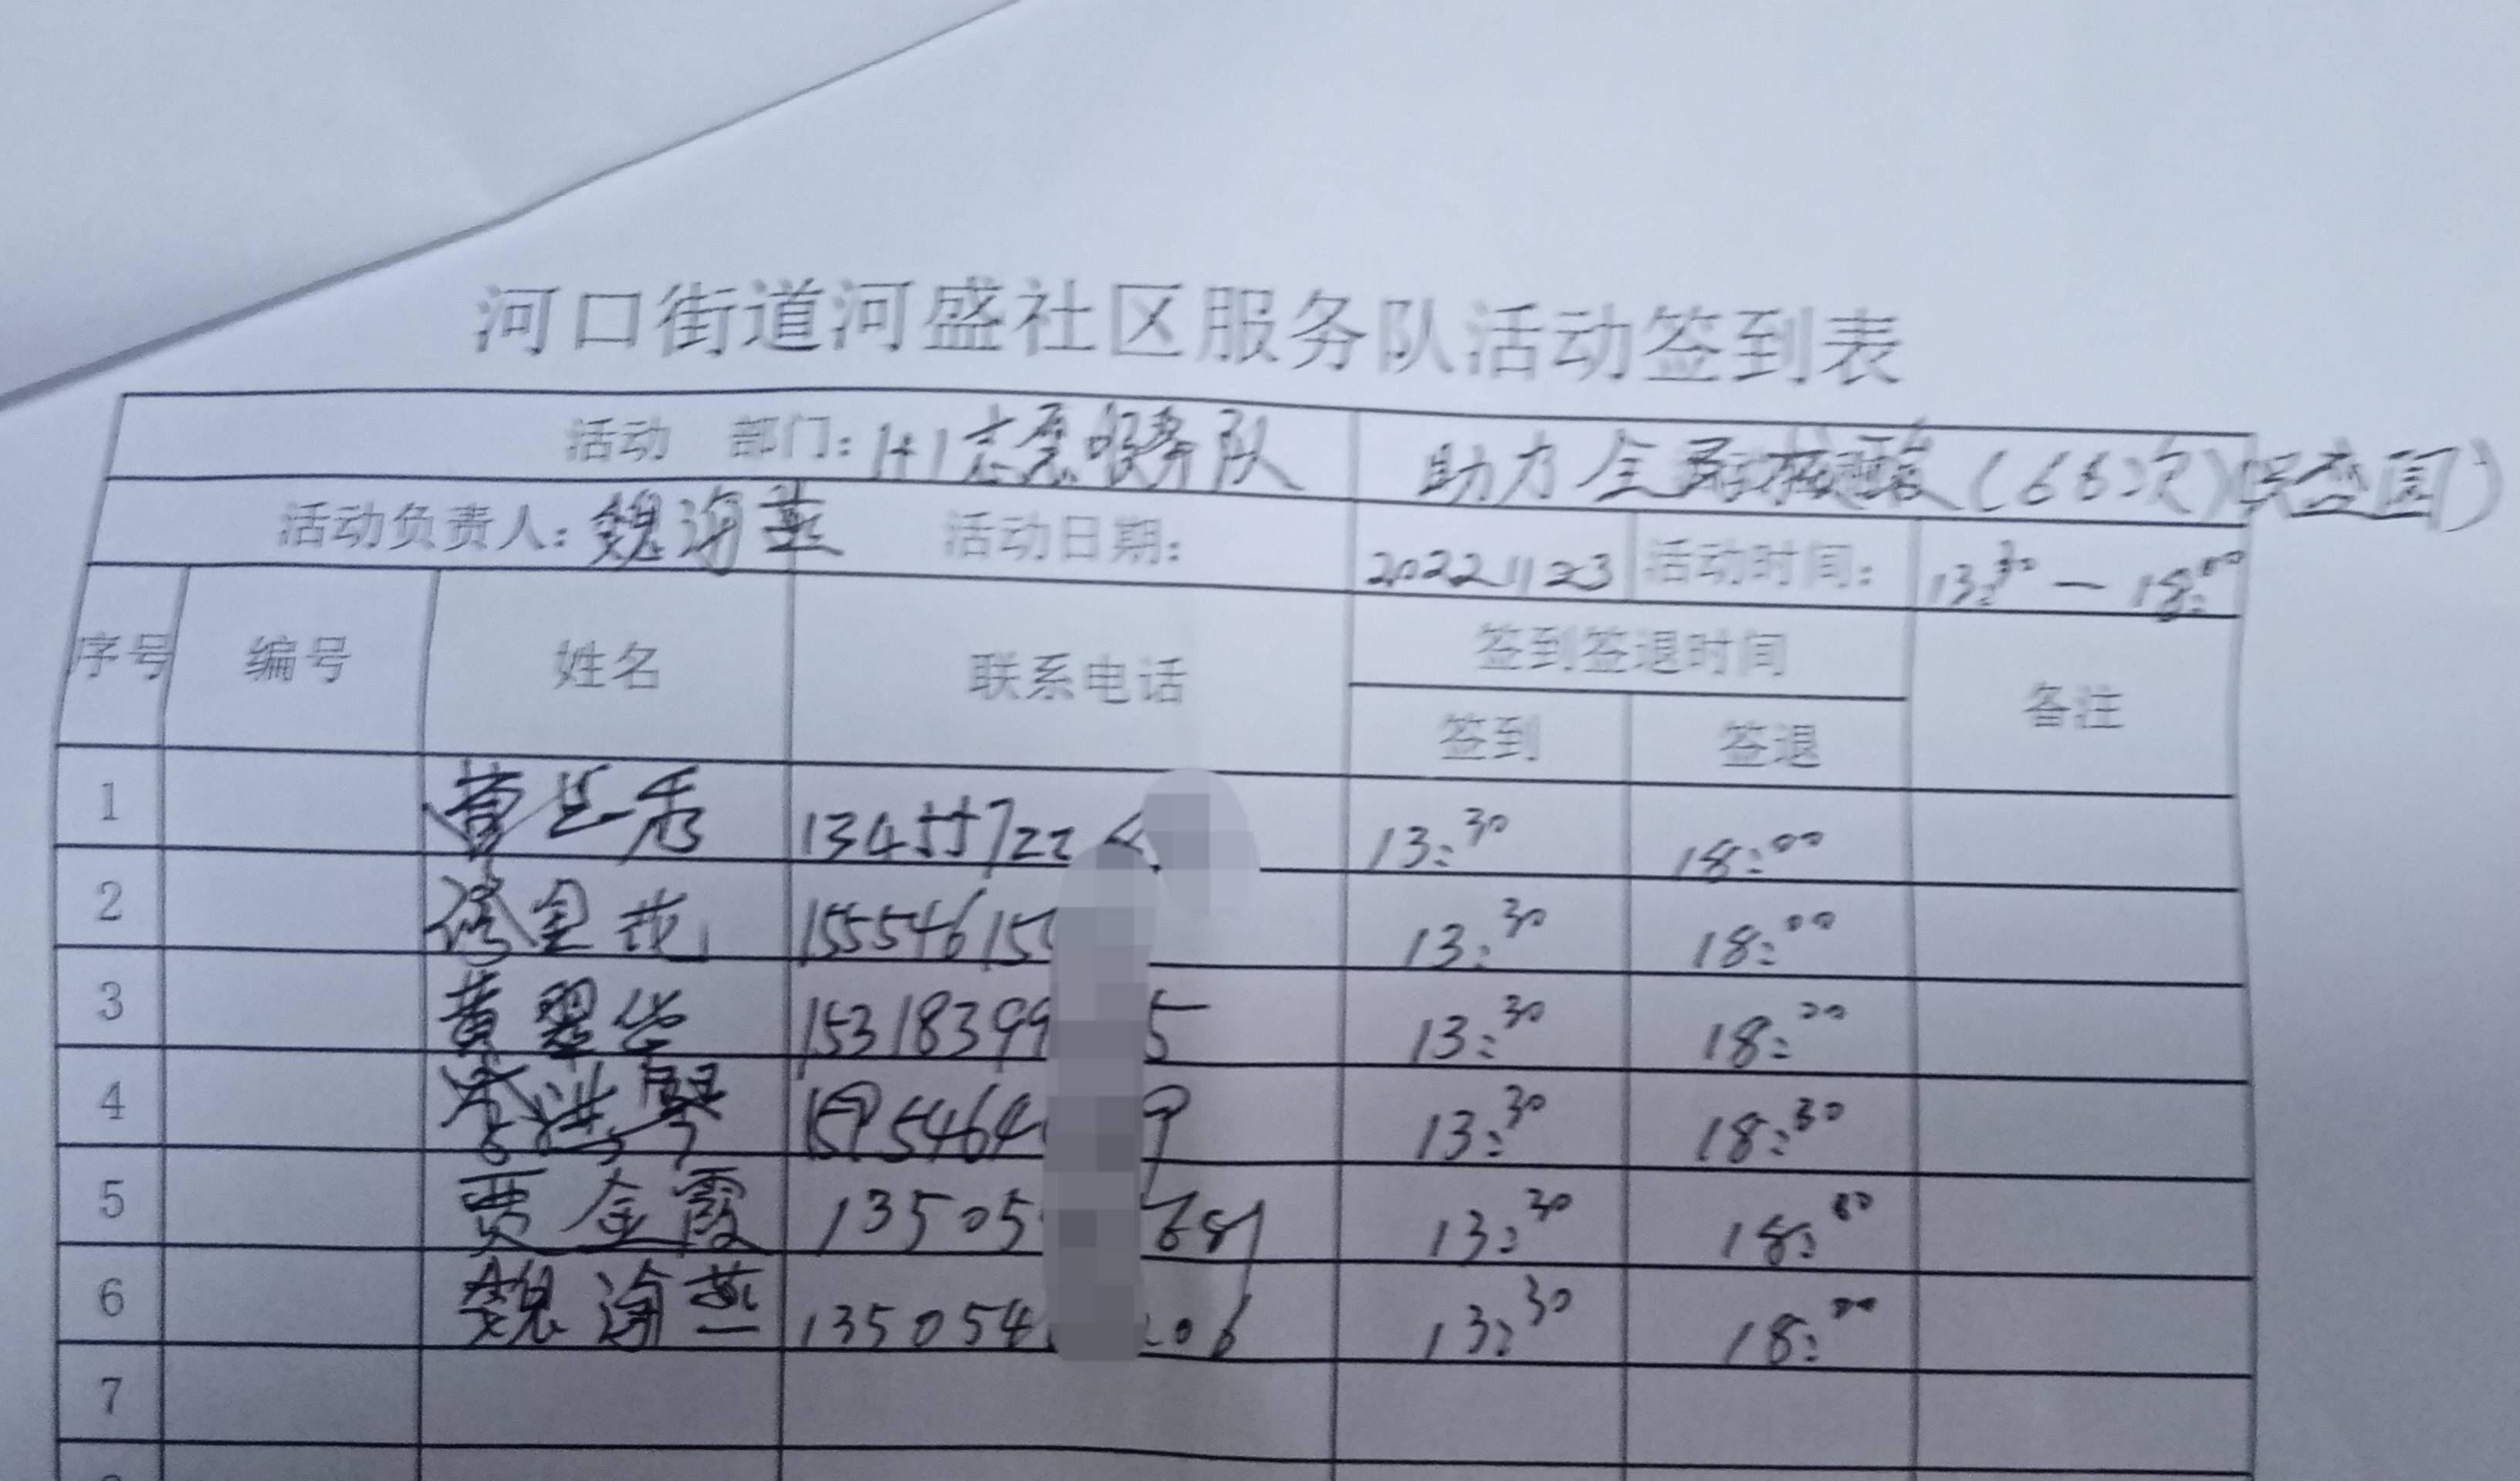 河口街道河盛社区服务队活动签到表
活动 部门: 1+1志愿服务队 助力全员核酸(66次)
活动负责人: 魏海燕 活动日期: 20221123 活动时间: 13:30 — 18:00
序号 编号 姓名 联系电话 签到签退时间 备注
签到 签退
1 黄兰秀 13455722 13:30 18:00
2 金花 15554615 13:30 18:00
3 黄翠华 15318399 5 13:30 18:00
4 琴 1595464 9 13:30 18:30
5 贾金霞 13505 681 13:30 18:00
6 魏海燕 135054 206 13:30 18:00
7